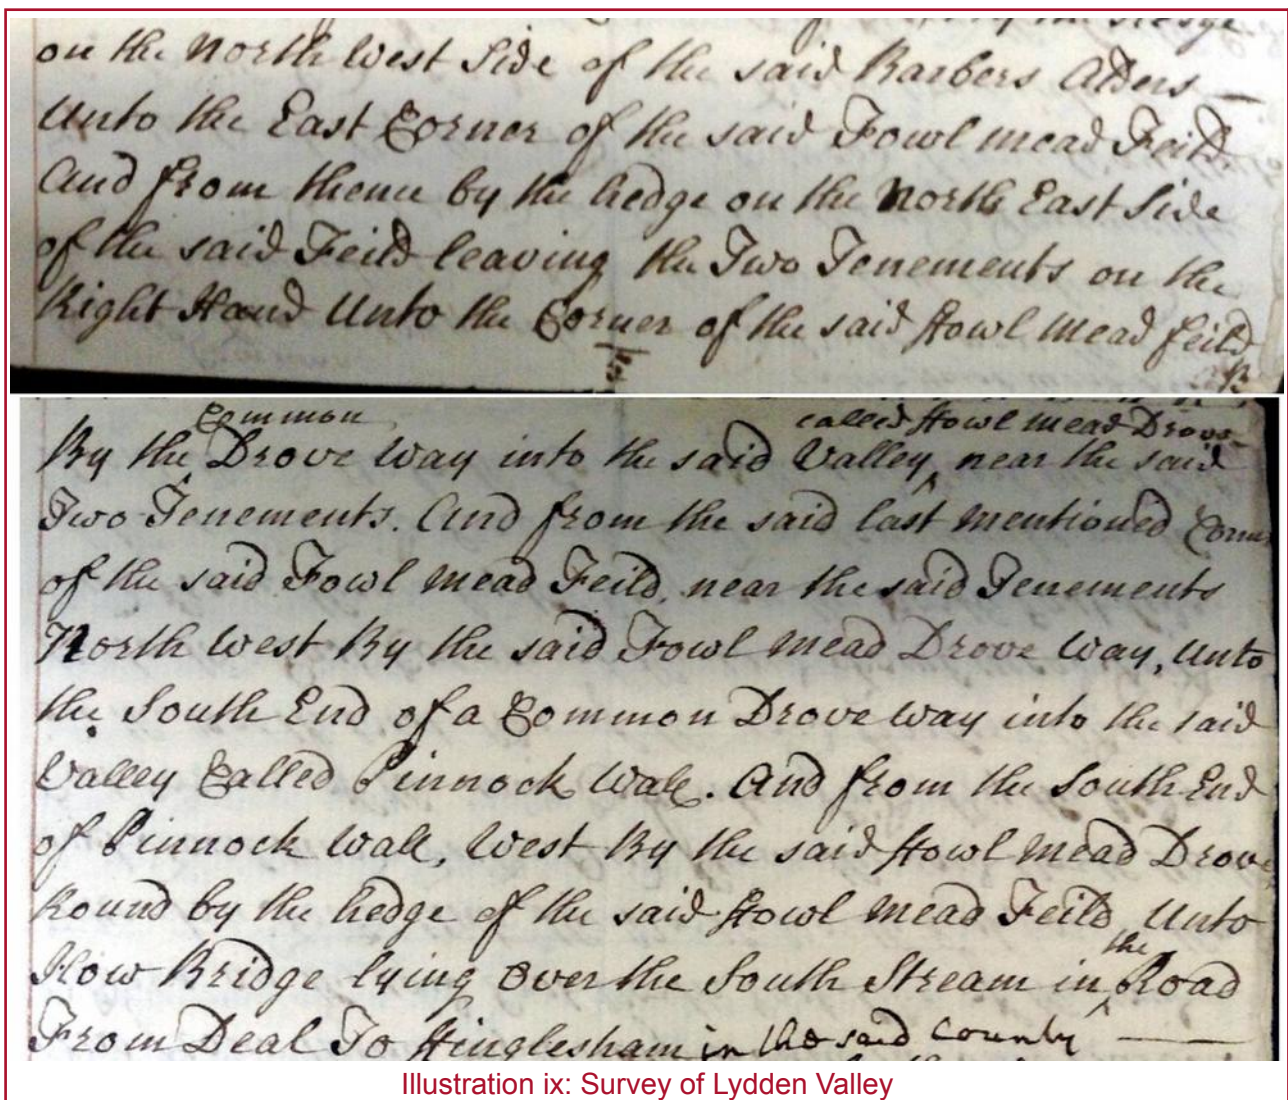 on the North West Side of the said Barbers Alders
Unto the East Corner of the said Fowl mead Feild.
And from thence by the hedge on the North East Side
of the said Feild leaving the Two Tenements on the
Right Hand Unto the Corner of the said Fowl Mead feild
Common called Fowl mead Drove
By the Drove Way into the said Valley, near the said
Two Tenements. And from the said last mentioned Corner
of the said Fowl mead Feild, near the said Tenements
North West By the said Fowl Mead Drove Way, Unto
the South End of a Common Drove way into the said
Valley Called Pinnock Wall. And from the South End
of Pinnock Wall, West By the said Fowl Mead Drove
Round by the hedge of the said Fowl Mead Feild, Unto
the
How Bridge lying Over the South Stream in Road
From Deal To Finglesham in the said County
Illustration ix: Survey of Lydden Valley